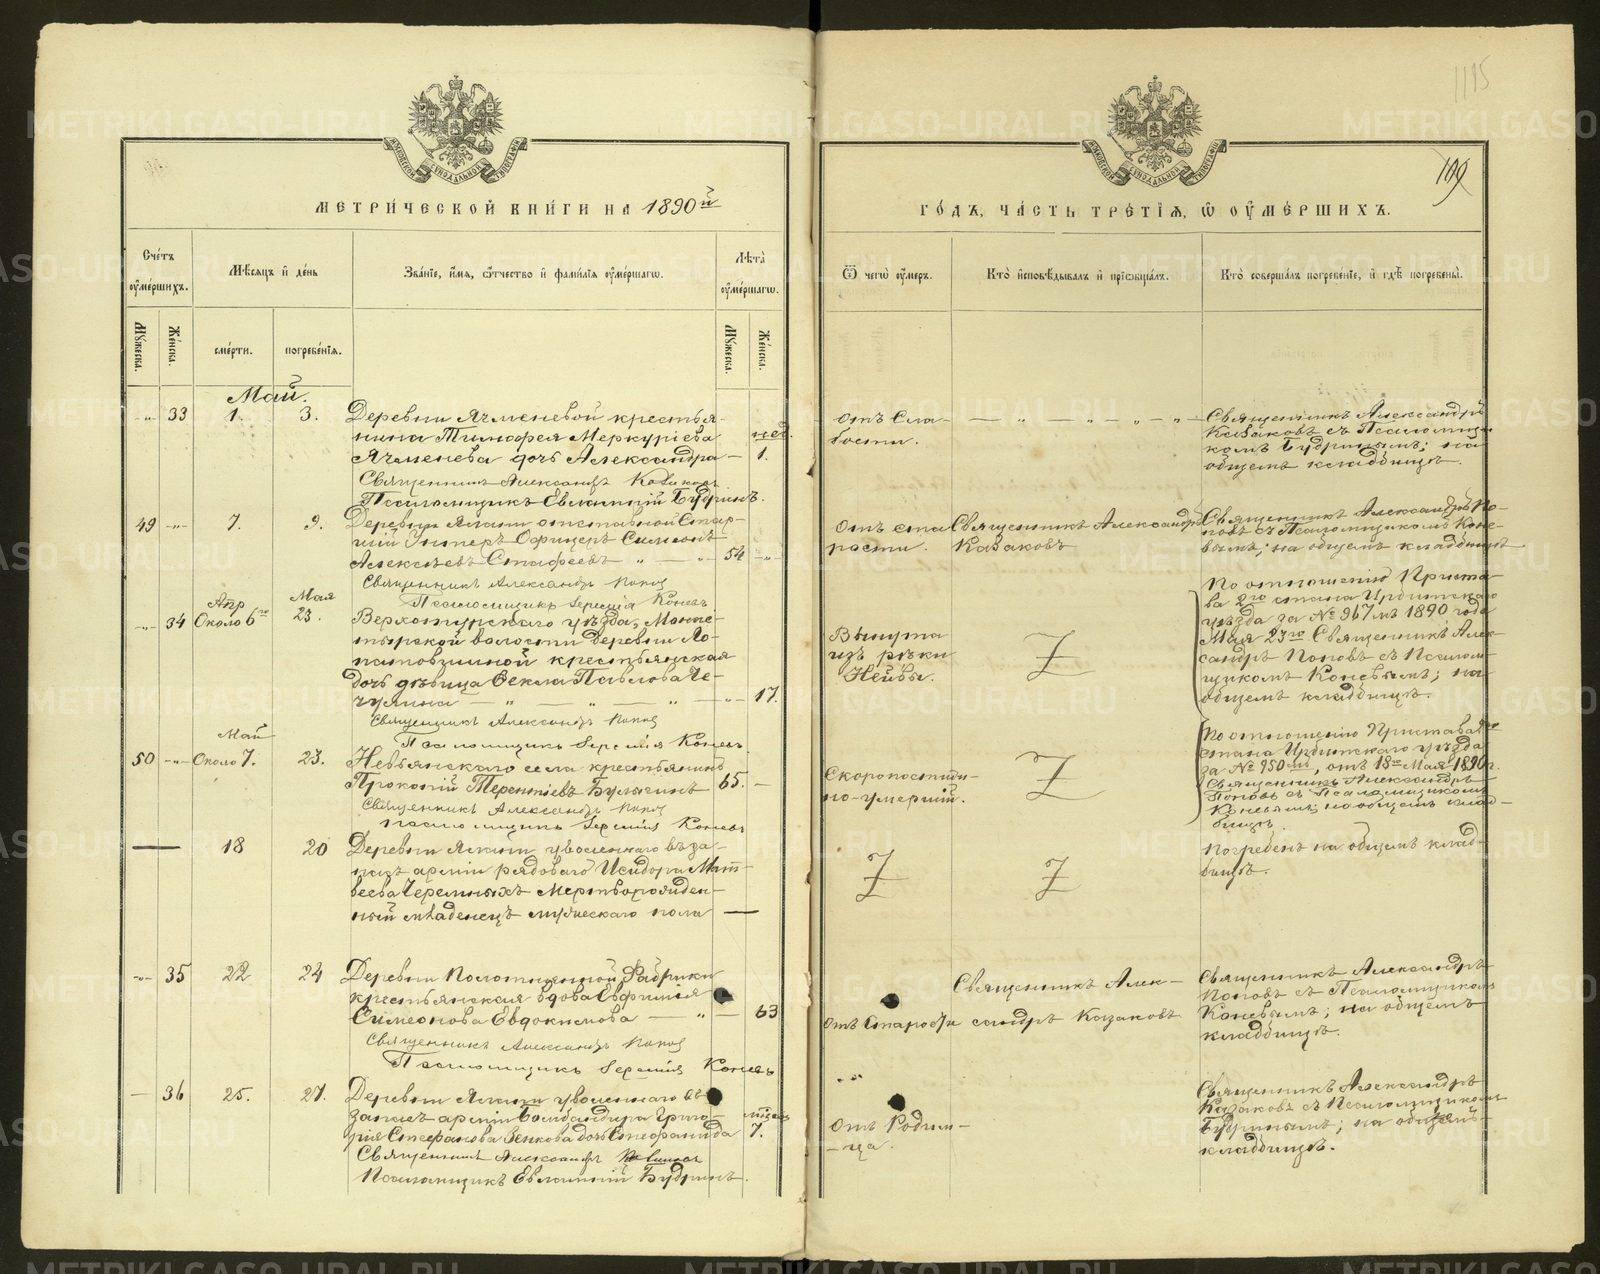 1195
109
МЕТРИ́ЧЕСКОЙ КНИ́ГИ НА 1890й
ГО́ДЪ, ЧА́СТЬ ТРЕ́ТІѦ, Ѡ ОУМЕ́РШИХЪ.
Сче́тъ оумершихъ.
Мѣсяцъ и де́нь
Зва́ніе, и́мя, о́тчество и фами́лія оуме́ршагѡ.
Лѣта̀ оуме́ршагѡ.
Ѿ чегѡ̀ оу́меръ.
Кто̀ исповѣ́дывалъ и пріобща́лъ.
Кто̀ соверша́лъ погребе́ніе, и гдѣ̀ погребены̀.
Му́жеска.
Же́нска.
сме́рти.
погребе́нія.
Му́жеска.
Же́нска.
Май.
-„- 33 1. 3. Деревни Ячменевой крестья-
нина Тимофея Меркуріева нед.
Ячменева дочь Александра — 1.
Священникъ Александръ Казаковъ
Псаломщикъ Евлампій Будринъ.
отъ Сла-
бости.
Священникъ Александръ
Казаковъ съ Псаломщи-
комъ Будринымъ; на
общемъ кладбищѣ.
49 -„- 7. 9. Деревни Ялани отставной Стар-
шій Унтеръ Офицеръ Симеонъ
Алексѣевъ Стафеевъ „ — „ 54 -„-
Священникъ Александръ Поповъ
Псаломщикъ Іеремія Коневъ
Отъ ста
рости.
Священникъ Александръ
Казаковъ
Священникъ Александръ По-
повъ съ Псаломщикомъ Коне-
вымъ; на общемъ кладбищѣ
Апр Мая
-„- 34 Около 6го 23. Верхотурскаго уѣзда, Монне-
тырской волости деревни Ло-
патовщиной крестьянская
дочь дѣвица Ѳекла Павлова Че-
чулина — „ — „ — „ -„- 17.
Священникъ Александръ Поповъ
Псаломщикъ Іеремія Коневъ
Вынута
изъ рѣки
Нейвы.
По отношенію Приста-
ва 2го стана Ирбитскаго
уѣзда за № 967мъ 1890 года
Мая 23го Священникъ Алек-
сандръ Поповъ съ Псалом-
щикомъ Коневымъ; на
общемъ кладбищѣ.
Май
50 -„- Около 7. 23. Невьянскаго села крестьянинъ
Прокопій Терентіевъ Булыгинъ 65. —
Священникъ Александръ Поповъ
Псаломщикъ Іеремія Коневъ
Скоропостиж-
но-умершій.
По отношенію Пристава 2го
стана Ирбитскаго уѣзда
за № 950мъ, отъ 18го Мая 1890 г.
Священникъ Александръ
Поповъ съ Псаломщикомъ
Коневымъ; на общемъ клад-
бищѣ.
— 18 20 Деревни Ялани уволеннаго въ за-
пасъ арміи рядоваго Исидора Мат-
веева Черемныхъ Мертворожден-
ный младенецъ мужескаго пола —
Погребенъ на общемъ клад-
бищѣ.
-„- 35 22 24 Деревни Полотняной Фабрики
крестьянская вдова Евфимія
Симеонова Евдокимова — „ — 63
Священникъ Александръ Поповъ
Псаломщикъ Іеремія Коневъ
отъ Старости
Священникъ Алек-
сандръ Казаковъ
Священникъ Александръ
Поповъ съ Псаломщикомъ
Коневымъ; на общемъ
кладбищѣ.
— 36 25. 27. Деревни Ялани уволеннаго въ
запасъ арміи Бомбандира Григо- мѣсяц
рія Стефанова Зенкова дочь Стефанида 7.
Священникъ Александръ Казаковъ
Псаломщикъ Евлампій Будринъ.
отъ Родим-
-ца.
Священникъ Александръ
Казаковъ съ Псаломщикомъ
Будринымъ; на общемъ
кладбищѣ.
METRIKI.GASO-URAL.RU